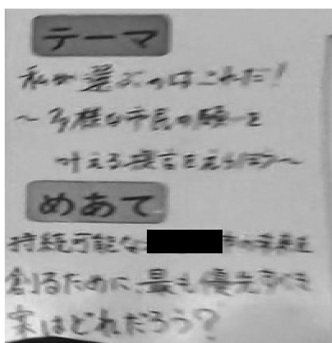 テーマ
私が選ぶのはこれだ!
~多様な市民の願いを
叶える提言をえらぼう~
めあて
持続可能な 市の未来を
創るために、最も優先すべき
案はどれだろう?